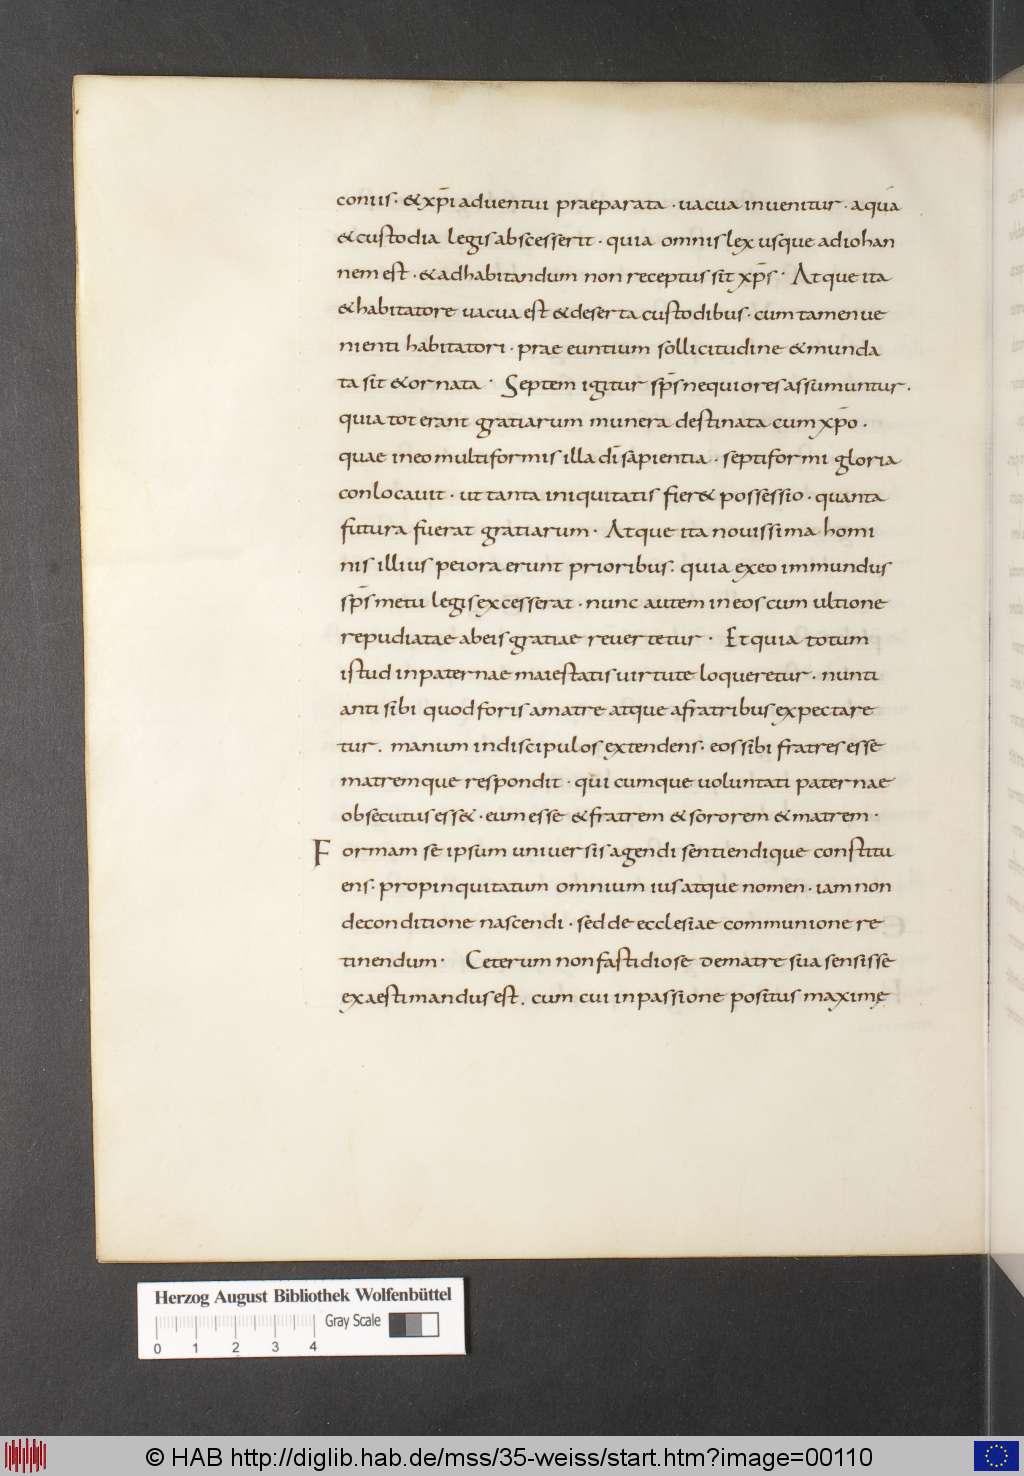 coniis· &xp̄i adventui praeparata · vacua invenitur · aqua
&custodia legis abscesserit · quia omnis lex usque adiohan
nem est · &adhabitandum non receptus sit xp̄s · Atque ita
&habitatore vacua est &deserta custodibus · cum tamen ve
nienti habitatori · prae euntium sollicitudine &munda
ta sit &ornata · Septem igitur sp̄s nequiores assumuntur ·
quia tot erant gratiarum munera destinata cum xp̄o ·
quae ineo multiformis illa dī sapientia · septiformi gloria
conlocavit · ut tanta iniquitatis fier& possessio · quanta
futura fuerat gratiarum · Atque ita novissima homi
nis illius peiora erunt prioribus · quia exeo immundus
sp̄s metu legis excesserat · nunc autem ineos cum ultione
repudiatae abeis gratiae revertetur · Et quia totum
istud inpaternae maiestatis virtute loqueretur · nunti
anti sibi quod foris amatre atque afratribus expectare
tur · manum indiscipulos extendens · eos sibi fratres esse
matremque respondit · qui cumque voluntati paternae
obsecutus ess& · eum esse &fratrem &sororem &matrem ·
Formam se ipsum universis agendi sentiendique constitu
ens · propinquitatum omnium ius atque nomen · iam non
deconditione nascendi · sed de ecclesiae communione re
tinendum · Ceterum non fastidiose dematre sua sensisse
exaestimandus est · cum cui inpassione positus maximę
Herzog August Bibliothek Wolfenbüttel
Gray Scale
0 1 2 3 4
© HAB http://diglib.hab.de/mss/35-weiss/start.htm?image=00110